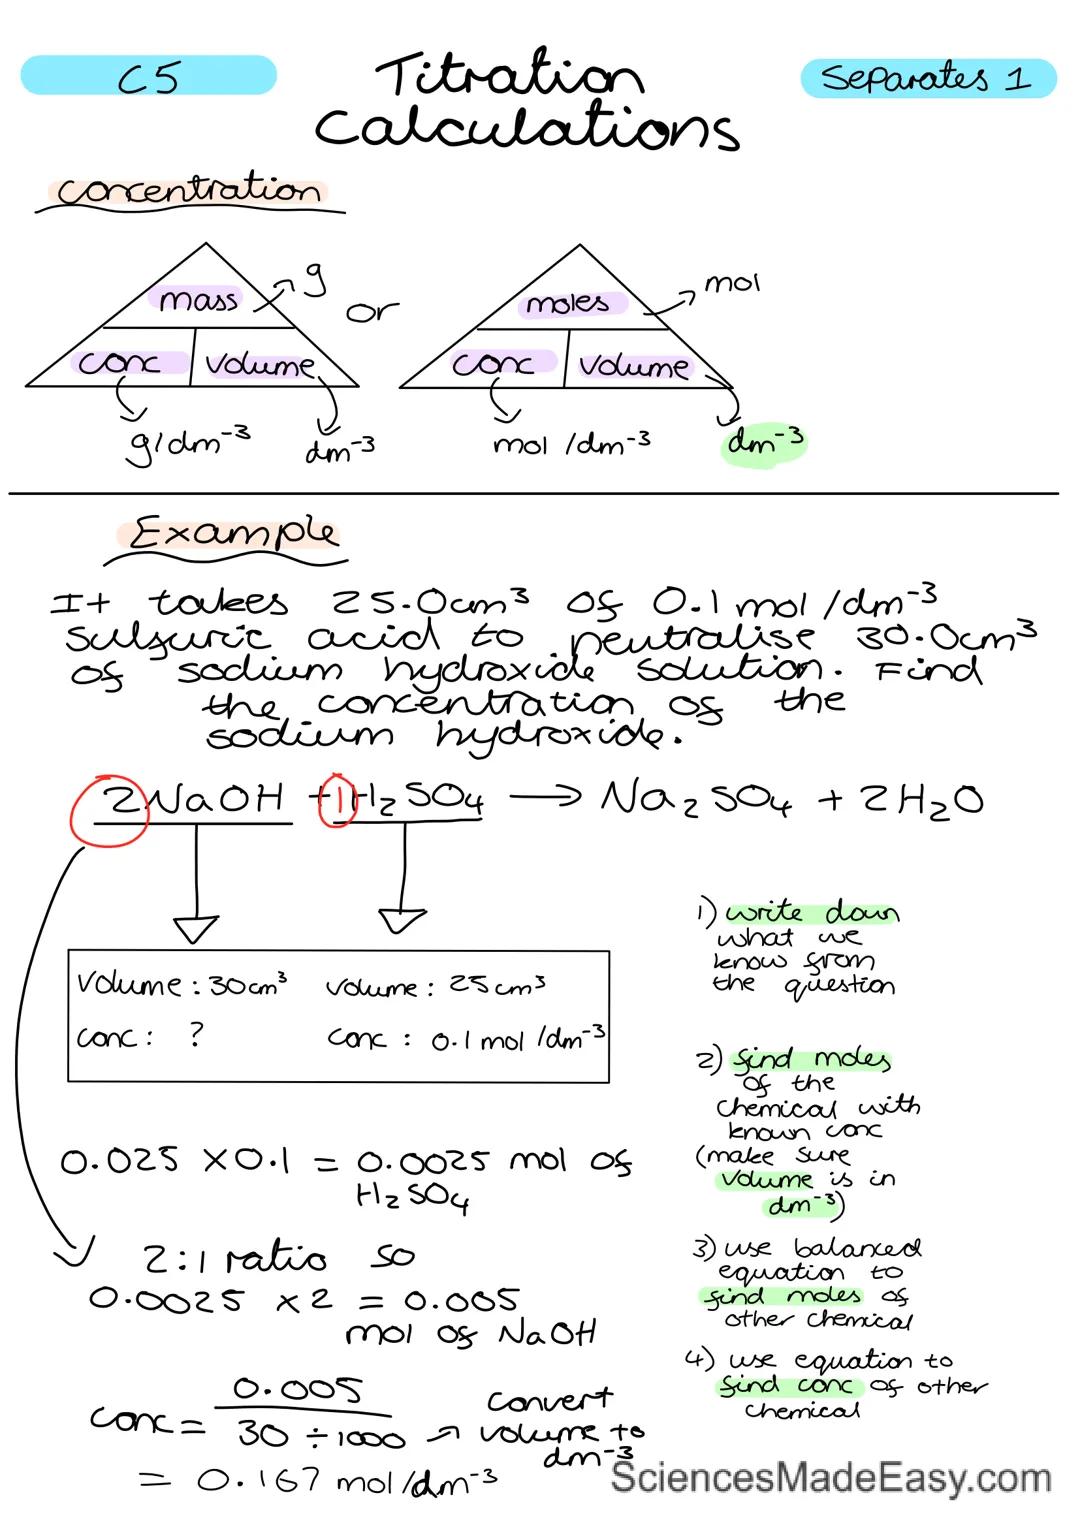 C5
Titration
Calculations
Separates 1
Concentration
mass
g
conc
volume
g/dm⁻³
dm⁻³
or
moles
mol
conc
volume
mol /dm⁻³
dm⁻³
Example
It takes 25.0cm³ of 0.1 mol /dm⁻³
sulfuric acid to neutralise 30.0cm³
of sodium hydroxide solution. Find
the concentration of the
sodium hydroxide.
2NaOH + 1H₂SO₄ → Na₂SO₄ + 2H₂O
Volume : 30cm³
conc : ?
volume : 25cm³
conc : 0.1 mol /dm⁻³
0.025 x0.1 = 0.0025 mol of
H₂SO₄
2:1 ratio so
0.0025 x2 = 0.005
mol of NaOH
conc = 0.005
30 ÷ 1000
convert
volume to
dm⁻³
= 0.167 mol/dm⁻³
1) write down
what we
know from
the question
2) find moles
of the
chemical with
known conc
(make sure
volume is in
dm⁻³)
3) use balanced
equation to
find moles of
other chemical
4) use equation to
find conc of other
chemical
SciencesMadeEasy.com